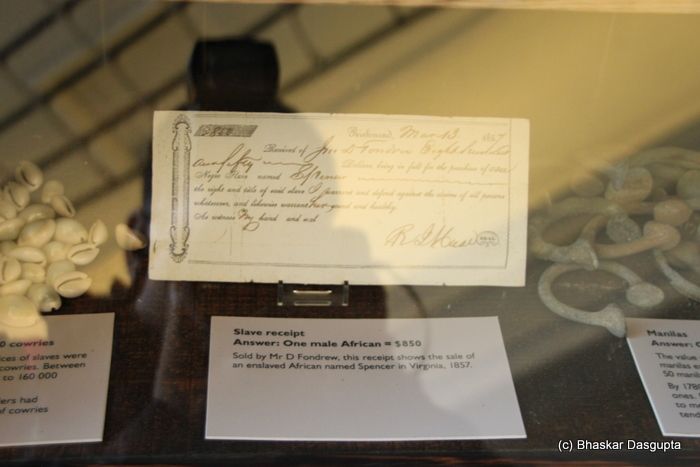 Richmond, Mar 13 1857
Received of Jno D Fondren Eight Hundred
and fifty Dollars, being in full for the purchase of one
Negro Slave named
the right and title of said slave I warrant and defend against the claims of all persons
whatsoever, and likewise warrant sound and healthy.
As witness My hand and seal.
0 cowries
ices of slaves were
cowries. Between
to 160 000
ders had
of cowries
Slave receipt
Answer: One male African = $850
Sold by Mr D Fondrew, this receipt shows the sale of
an enslaved African named Spencer in Virginia, 1857.
Manillas
Answer:
The value
manillas ex
50 manil
By 178
ones.
to m
tend
(c) Bhaskar Dasgupta